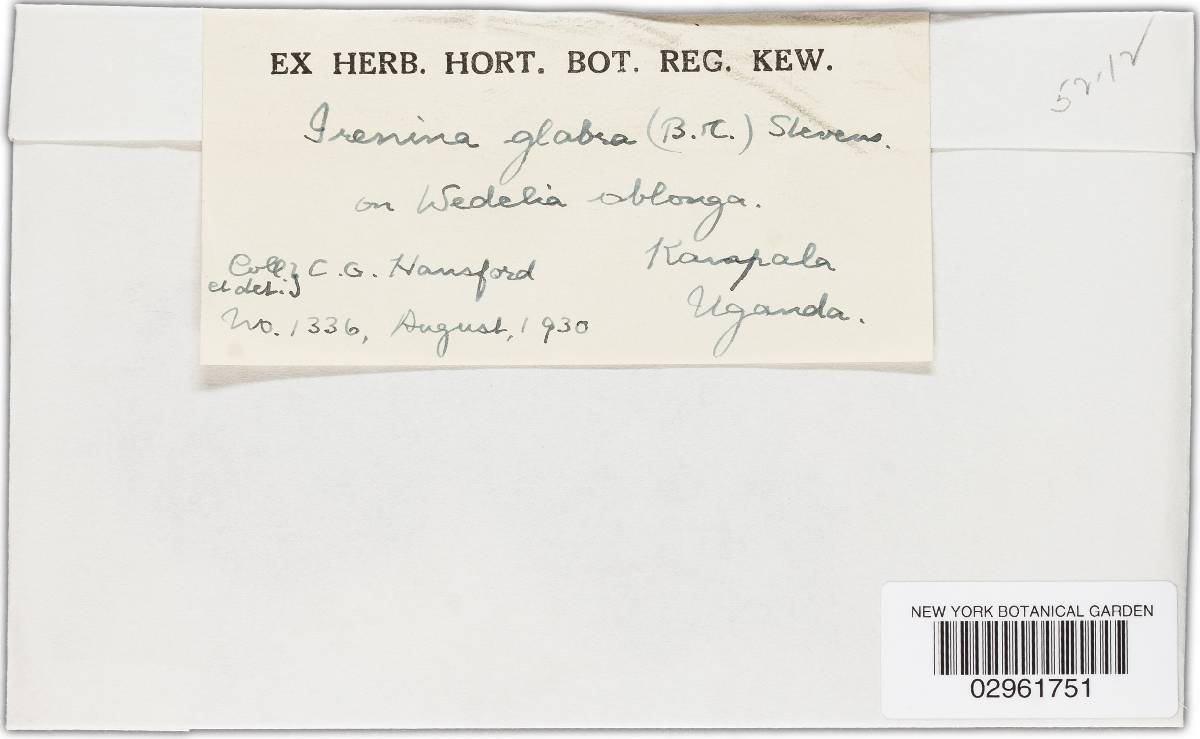 EX HERB. HORT. BOT. REG. KEW.
52.12
Irenina glabra (B.&C.) Stevens.
on Wedelia oblonga.
Coll. et det. } C. G. Hansford
Kampala
Uganda.
No. 1336, August, 1930
NEW YORK BOTANICAL GARDEN
02961751